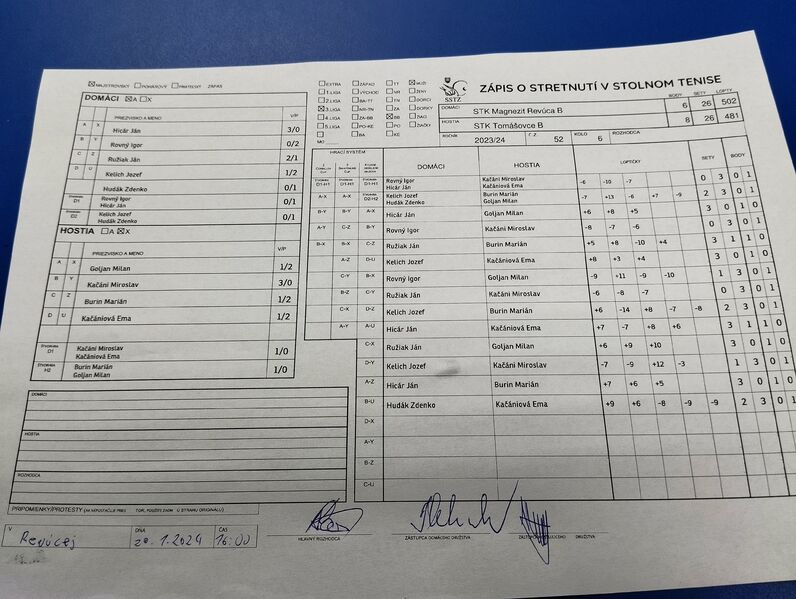 MAJSTROVSKÝ POHÁROVÝ PRIATEĽSKÝ ZÁPAS
ZÁPIS O STRETNUTÍ V STOLNOM TENISE
SSTZ
BODY SETY LOPTY
DOMÁCI STK Magnezit Revúca B 6 26 502
HOSTIA STK Tomášovce B 8 26 481
ROČNÍK 2023/24 Č.Z. 52 KOLO 6 ROZHODCA
EXTRA ZÁPAD TT MUŽI
1.LIGA VÝCHOD NR ŽENY
2.LIGA BA-TT TN DORCI
3.LIGA NR-TN ZA DORKY
4.LIGA ZA-BB BB ŽIACI
5.LIGA PO-KE PO ŽIAČKY
BA KE
MO
DOMÁCI A X
PRIEZVISKO A MENO V/P
A X Hicár Ján 3/0
B Y Rovný Igor 0/2
C Z Ružiak Ján 2/1
D U Kelich Jozef 1/2
Hudák Zdenko 0/1
D1 Rovný Igor
Hicár Ján 0/1
D2 Kelich Jozef
Hudák Zdenko 0/1
HOSTIA A X
PRIEZVISKO A MENO V/P
A X Goljan Milan 1/2
B Y Kačáni Miroslav 3/0
C Z Burin Marián 1/2
D U Kačániová Ema 1/2
ŠTVORHRA D1 Kačáni Miroslav
Kačániová Ema 1/0
ŠTVORHRA H2 Burin Marián
Goljan Milan 1/0
HRACÍ SYSTÉM DOMÁCI HOSTIA LOPTIČKY SETY BODY
D1-H1 D1-H1 D1-H1 Rovný Igor
Hicár Ján Kačáni Miroslav
Kačániová Ema -6 -10 -7 0 3 0 1
A-X A-X D2-H2 Kelich Jozef
Hudák Zdenko Burin Marián
Goljan Milan -7 +13 -6 +7 -9 2 3 0 1
B-Y B-Y A-X Hicár Ján Goljan Milan +6 +8 +5 3 0 1 0
A-Y C-Z B-Y Rovný Igor Kačáni Miroslav -8 -7 -6 0 3 0 1
B-X B-X C-Z Ružiak Ján Burin Marián +5 +8 -10 +4 3 1 1 0
A-Z D-U Kelich Jozef Kačániová Ema +8 +3 +4 3 0 1 0
C-Y B-X Rovný Igor Goljan Milan -9 +11 -9 -10 1 3 0 1
B-Z C-Y Ružiak Ján Kačáni Miroslav -6 -8 -7 0 3 0 1
C-X D-Z Kelich Jozef Burin Marián +6 -14 +8 -7 -8 2 3 0 1
A-Y A-U Hicár Ján Kačániová Ema +7 -7 +8 +6 3 1 1 0
C-X Ružiak Ján Goljan Milan +6 +9 +10 3 0 1 0
D-Y Kelich Jozef Kačáni Miroslav -7 -9 +12 -3 1 3 0 1
A-Z Hicár Ján Burin Marián +7 +6 +5 3 0 1 0
B-U Hudák Zdenko Kačániová Ema +9 +6 -8 -9 -9 2 3 0 1
D-X
A-Y
B-Z
C-U
DOMÁCI
HOSTIA
ROZHODCA
PRIPOMIENKY/PROTESTY
V Revúcej DŇA 20.1.2024 ČAS 16:00
HLAVNÝ ROZHODCA ZÁSTUPCA DOMÁCEHO DRUŽSTVA DRUŽSTVA